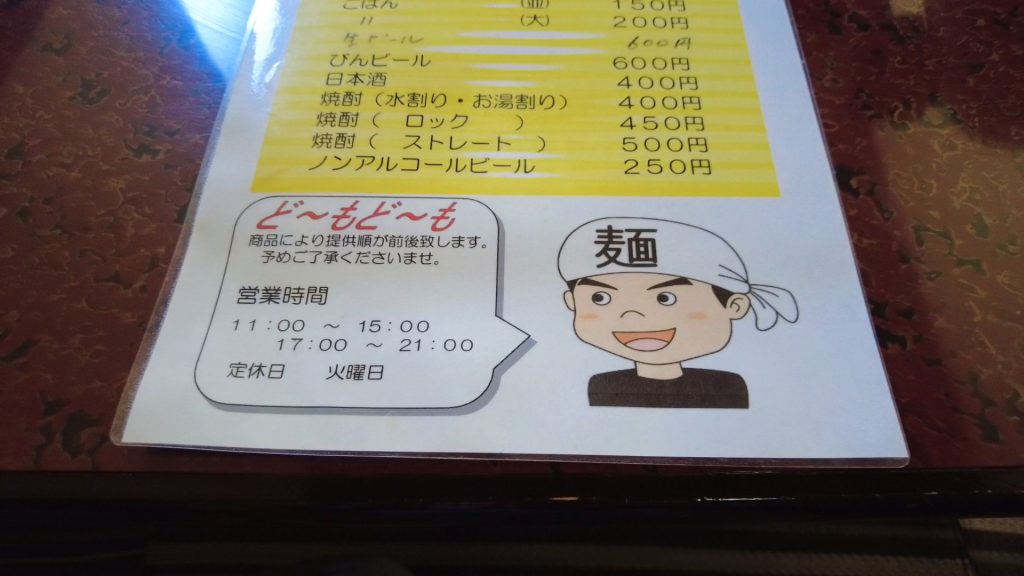 ごはん （並） 150円
〃 （大） 200円
生ビール 600円
びんビール 600円
日本酒 400円
焼酎（水割り・お湯割り） 400円
焼酎（ ロック ） 450円
焼酎（ ストレート ） 500円
ノンアルコールビール 250円
ど～もど～も
商品により提供順が前後致します。
予めご了承くださいませ。
営業時間
11：00 ～ 15：00
17：00 ～ 21：00
定休日 火曜日
麺